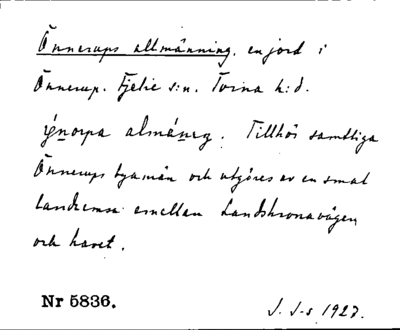 Önnerups allmänning. en jord i
Önnerup. Fjelie s:n. Torna h:d.
almáneg. Tillhör samtliga
Önnerups byamän och utgöres av en smal
landremsa emellan Landskronavägen
och havet.
Nr 5836.
J. J-s 1927.